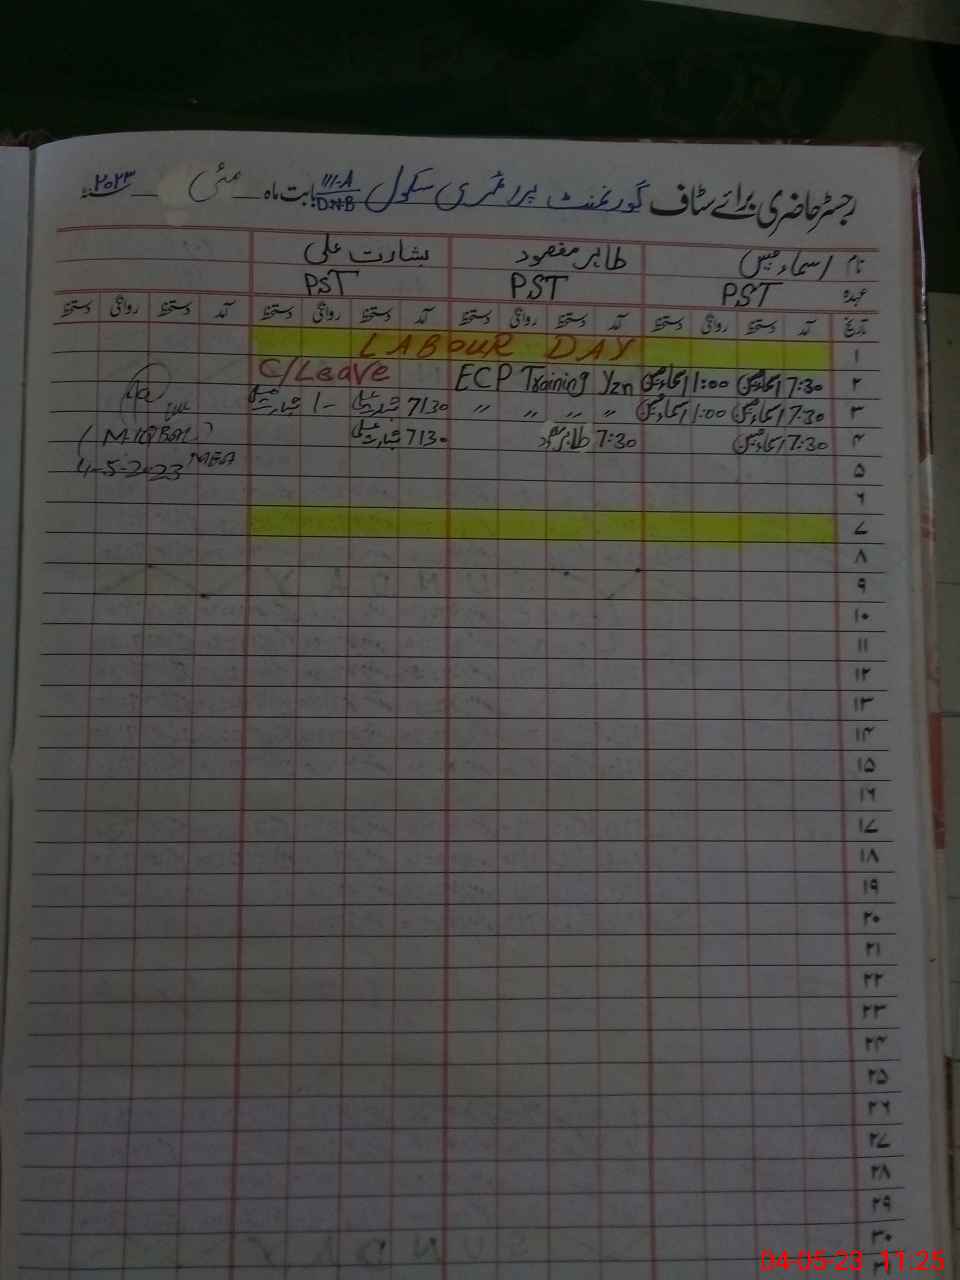 رجسٹر حاضری برائے سٹاف گورنمنٹ پرائمری سکول 111-A D.N.B بابت ماہ مئی ۲۰۲۳
نام اسماء طاہر مقصود بشارت علی
عہدہ PST PST PST
تاریخ آمد دستخط روانگی دستخط آمد دستخط روانگی دستخط آمد دستخط روانگی دستخط آمد دستخط روانگی دستخط
۱ LABOUR DAY
۲ 7:30 1:00 ECP Training Yzn C/Leave
۳ 7:30 1:00 " " " " 7:30 بشارت علی 1- بشارت علی
۴ 7:30 7:30 طاہر مقصود 7:30 بشارت علی (M.IQBAL)
۵ 4-5-2023 MEA
۶
۷
۸
۹
۱۰
۱۱
۱۲
۱۳
۱۴
۱۵
۱۶
۱۷
۱۸
۱۹
۲۰
۲۱
۲۲
۲۳
۲۴
۲۵
۲۶
۲۷
۲۸
۲۹
۳۰
04-05-23 11:25